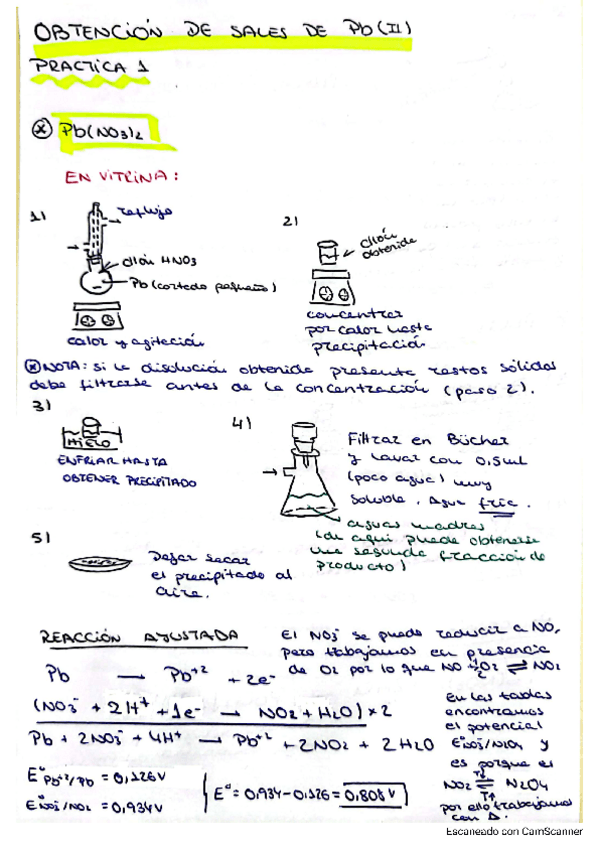 OBTENCIÓN DE SALES DE Pb(II)
PRACTICA 1
* Pb(NO3)2
EN VITRINA:
1)
reflujo
dión HNO3
Pb (cortado pequeño)
calor y agitación
2)
dión
obtenida
concentrar
por calor hasta
precipitación
* NOTA: si la disolución obtenida presenta restos sólidos
debe filtrarse antes de la concentración (paso 2).
3)
HIELO
ENFRIAR HASTA
OBTENER PRECIPITADO
4)
Filtrar en Bücher
y lavar con 0,5ml
(poco agua) muy
soluble. Agua fría.
aguas madres
(de aquí puede obtenerse
una segunda fracción de
producto)
5)
Dejar secar
el precipitado al
aire.
REACCIÓN AJUSTADA
El NO3- se puede reducir a NO,
pero trabajamos en presencia
de O2 por lo que NO + 1/2O2 ⇌ NO2
Pb → Pb+2 + 2e-
(NO3- + 2H+ + 1e- → NO2 + H2O) x 2
Pb + 2NO3- + 4H+ → Pb+2 + 2NO2 + 2H2O
En las tablas
encontramos
el potencial
y
es porque el
NO2 ⇌ N2O4
por ello trabajamos
con Δ.
E°Pb+2/Pb = 0,126V
E°NO3-/NO2 = 0,934V
E° = 0,934 - 0,126 = 0,808V
Escaneado con CamScanner